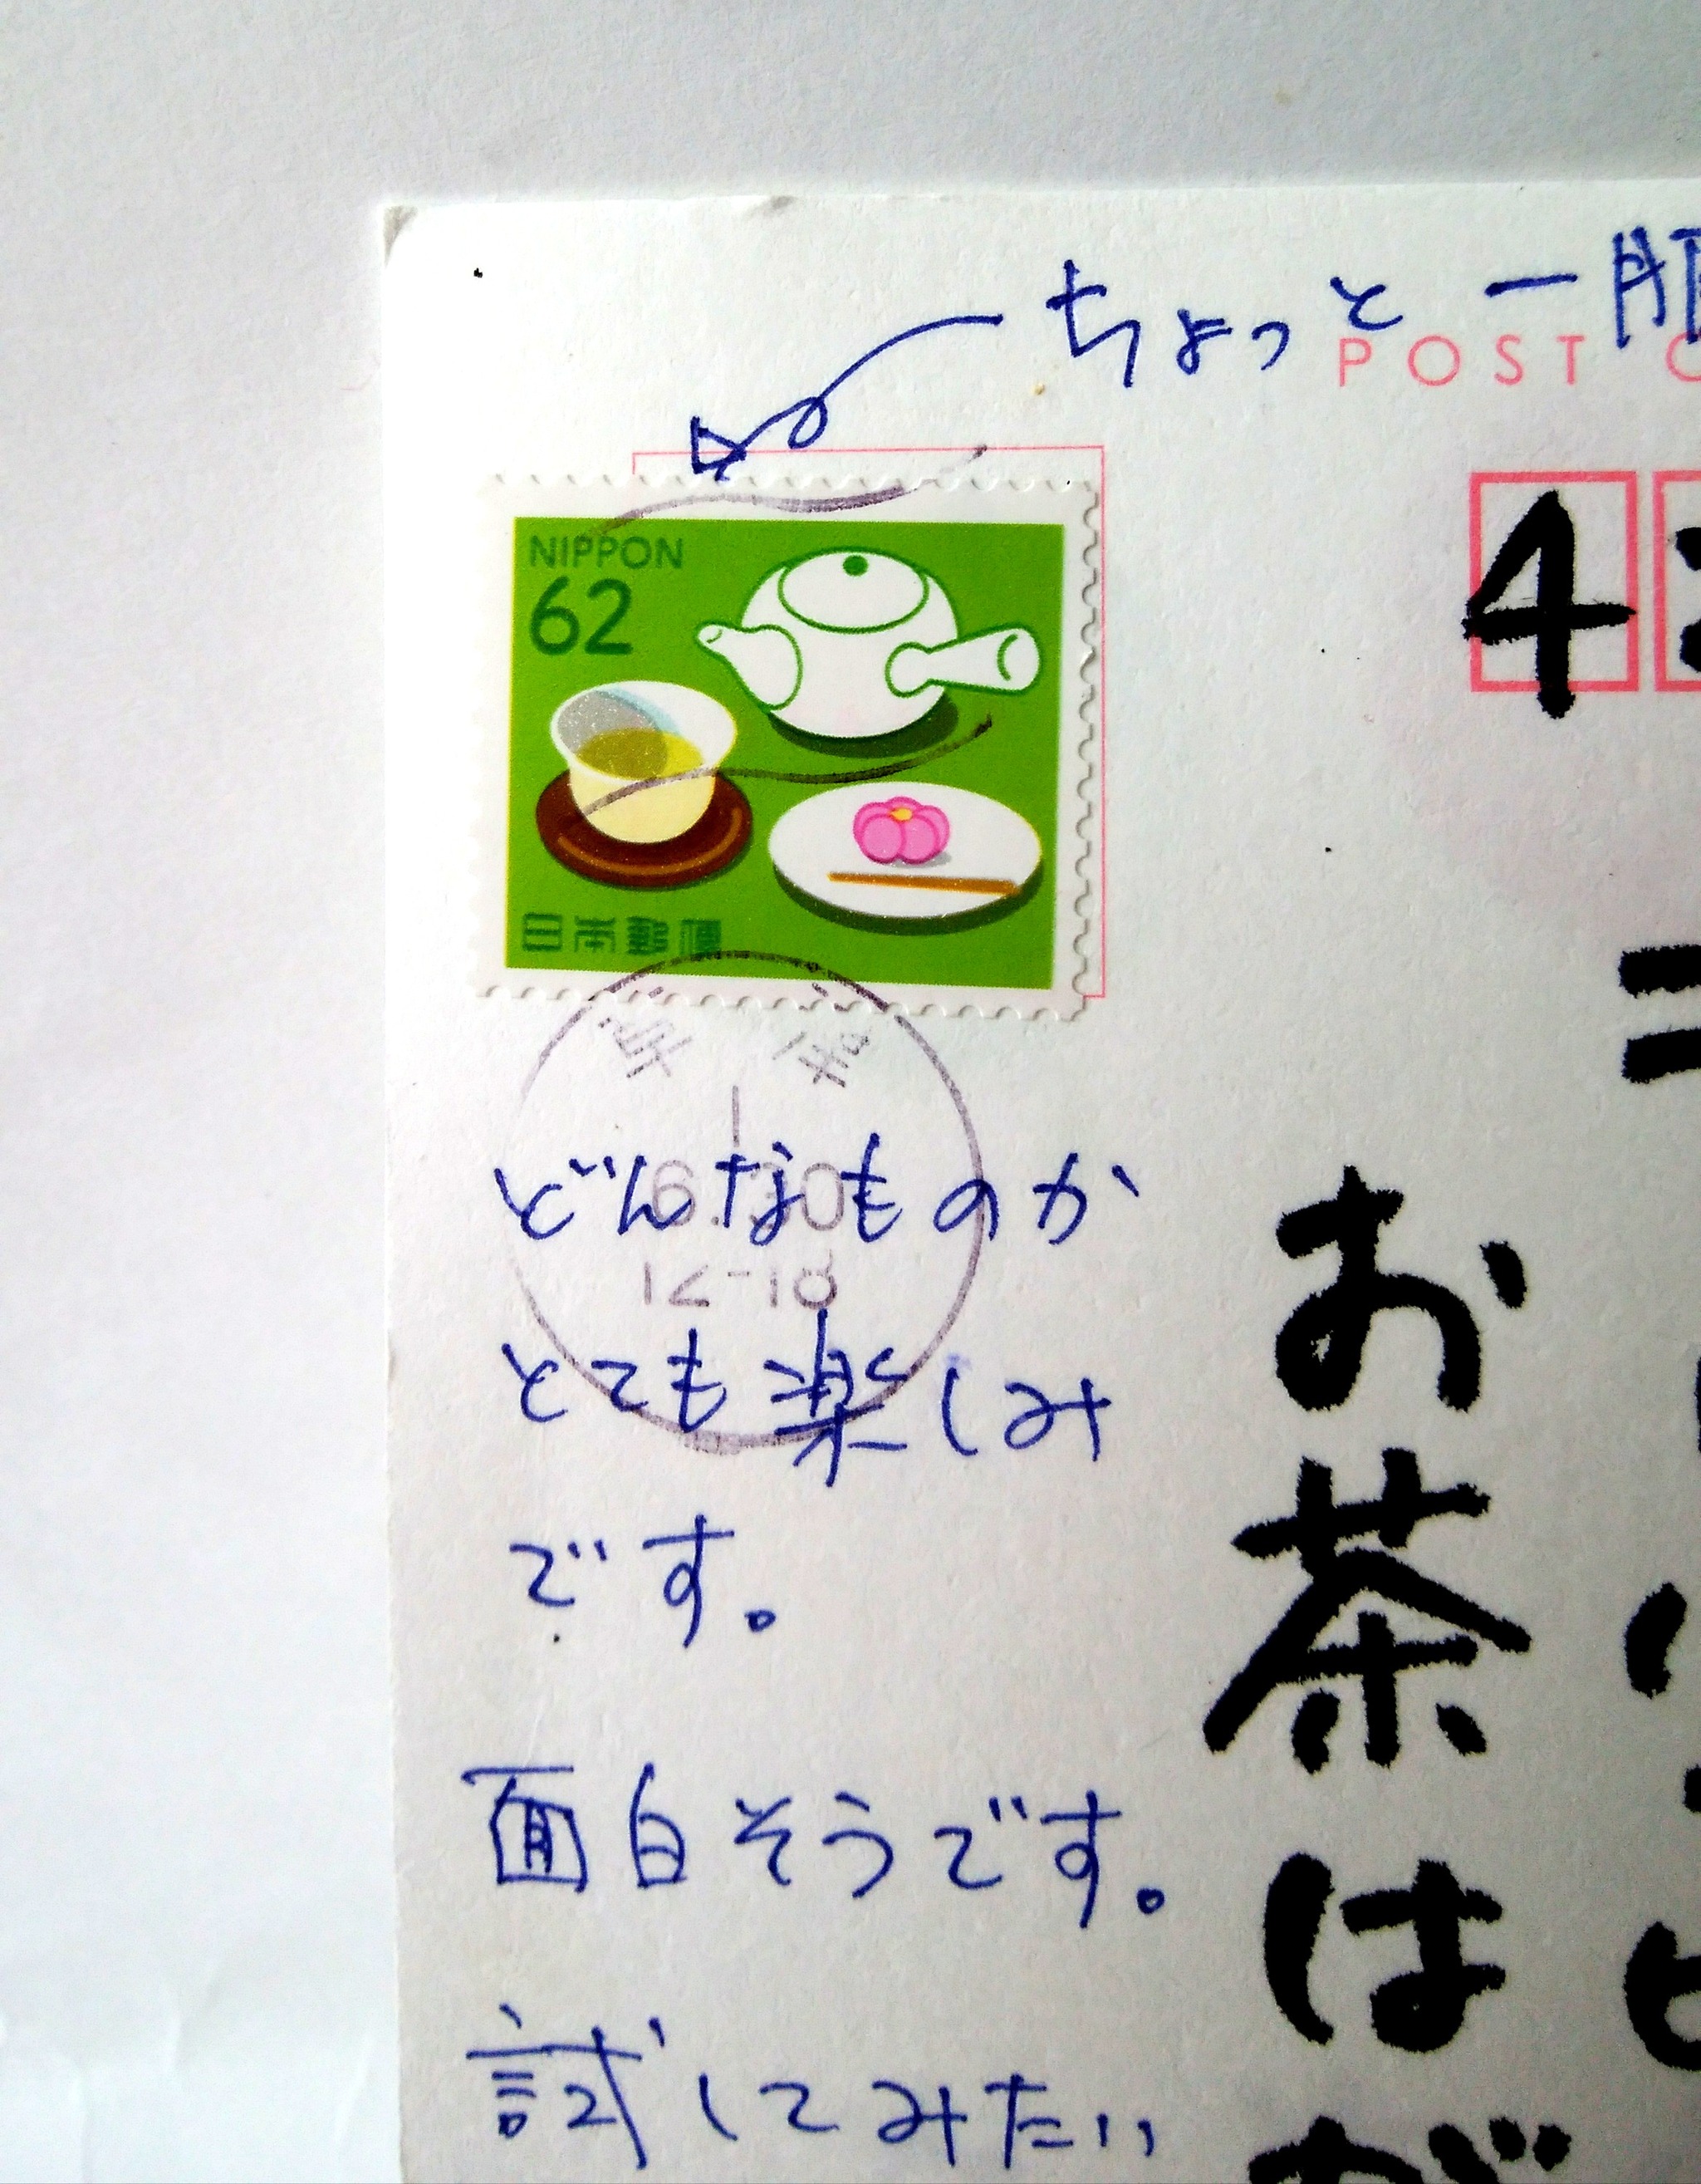 ちょっと一服
POST
NIPPON
62
日本郵便
4
東京
12-18
どんなものか
とても楽しみ
です。
面白そうです。
試してみたい
お茶は